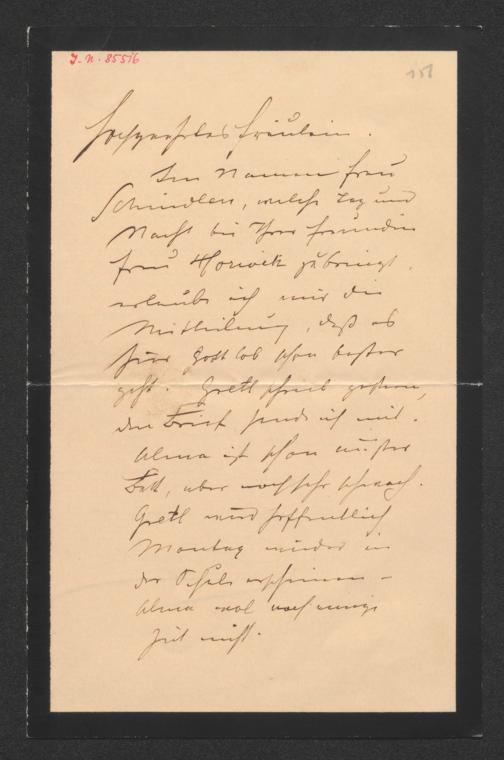 J. N. 85516
151
Hochgeehrtes Fräulein.
Im Namen Frau
Schindler, welche Tag und
Nacht bei Ihrer Freundin
Frau Horwitz zubringt,
erlaube ich mir die
Mittheilung, daß es
Gott lob schon besser
geht. Gretl schrieb gestern,
den Brief sende ich mit.
Alma ist schon außer
Bett, aber noch sehr schwach.
Gretl wird hoffentlich
Montag wieder in
der Schule erscheinen –
Alma wol noch einige
Zeit nicht.